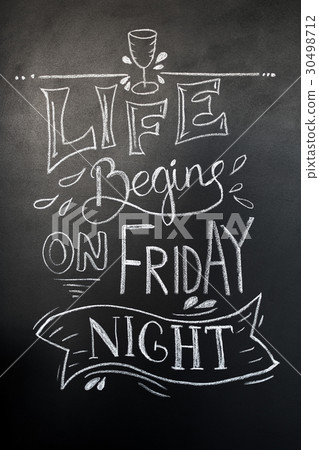 LIFE
Begins
ON FRIDAY
NIGHT
PIXTA
30498712